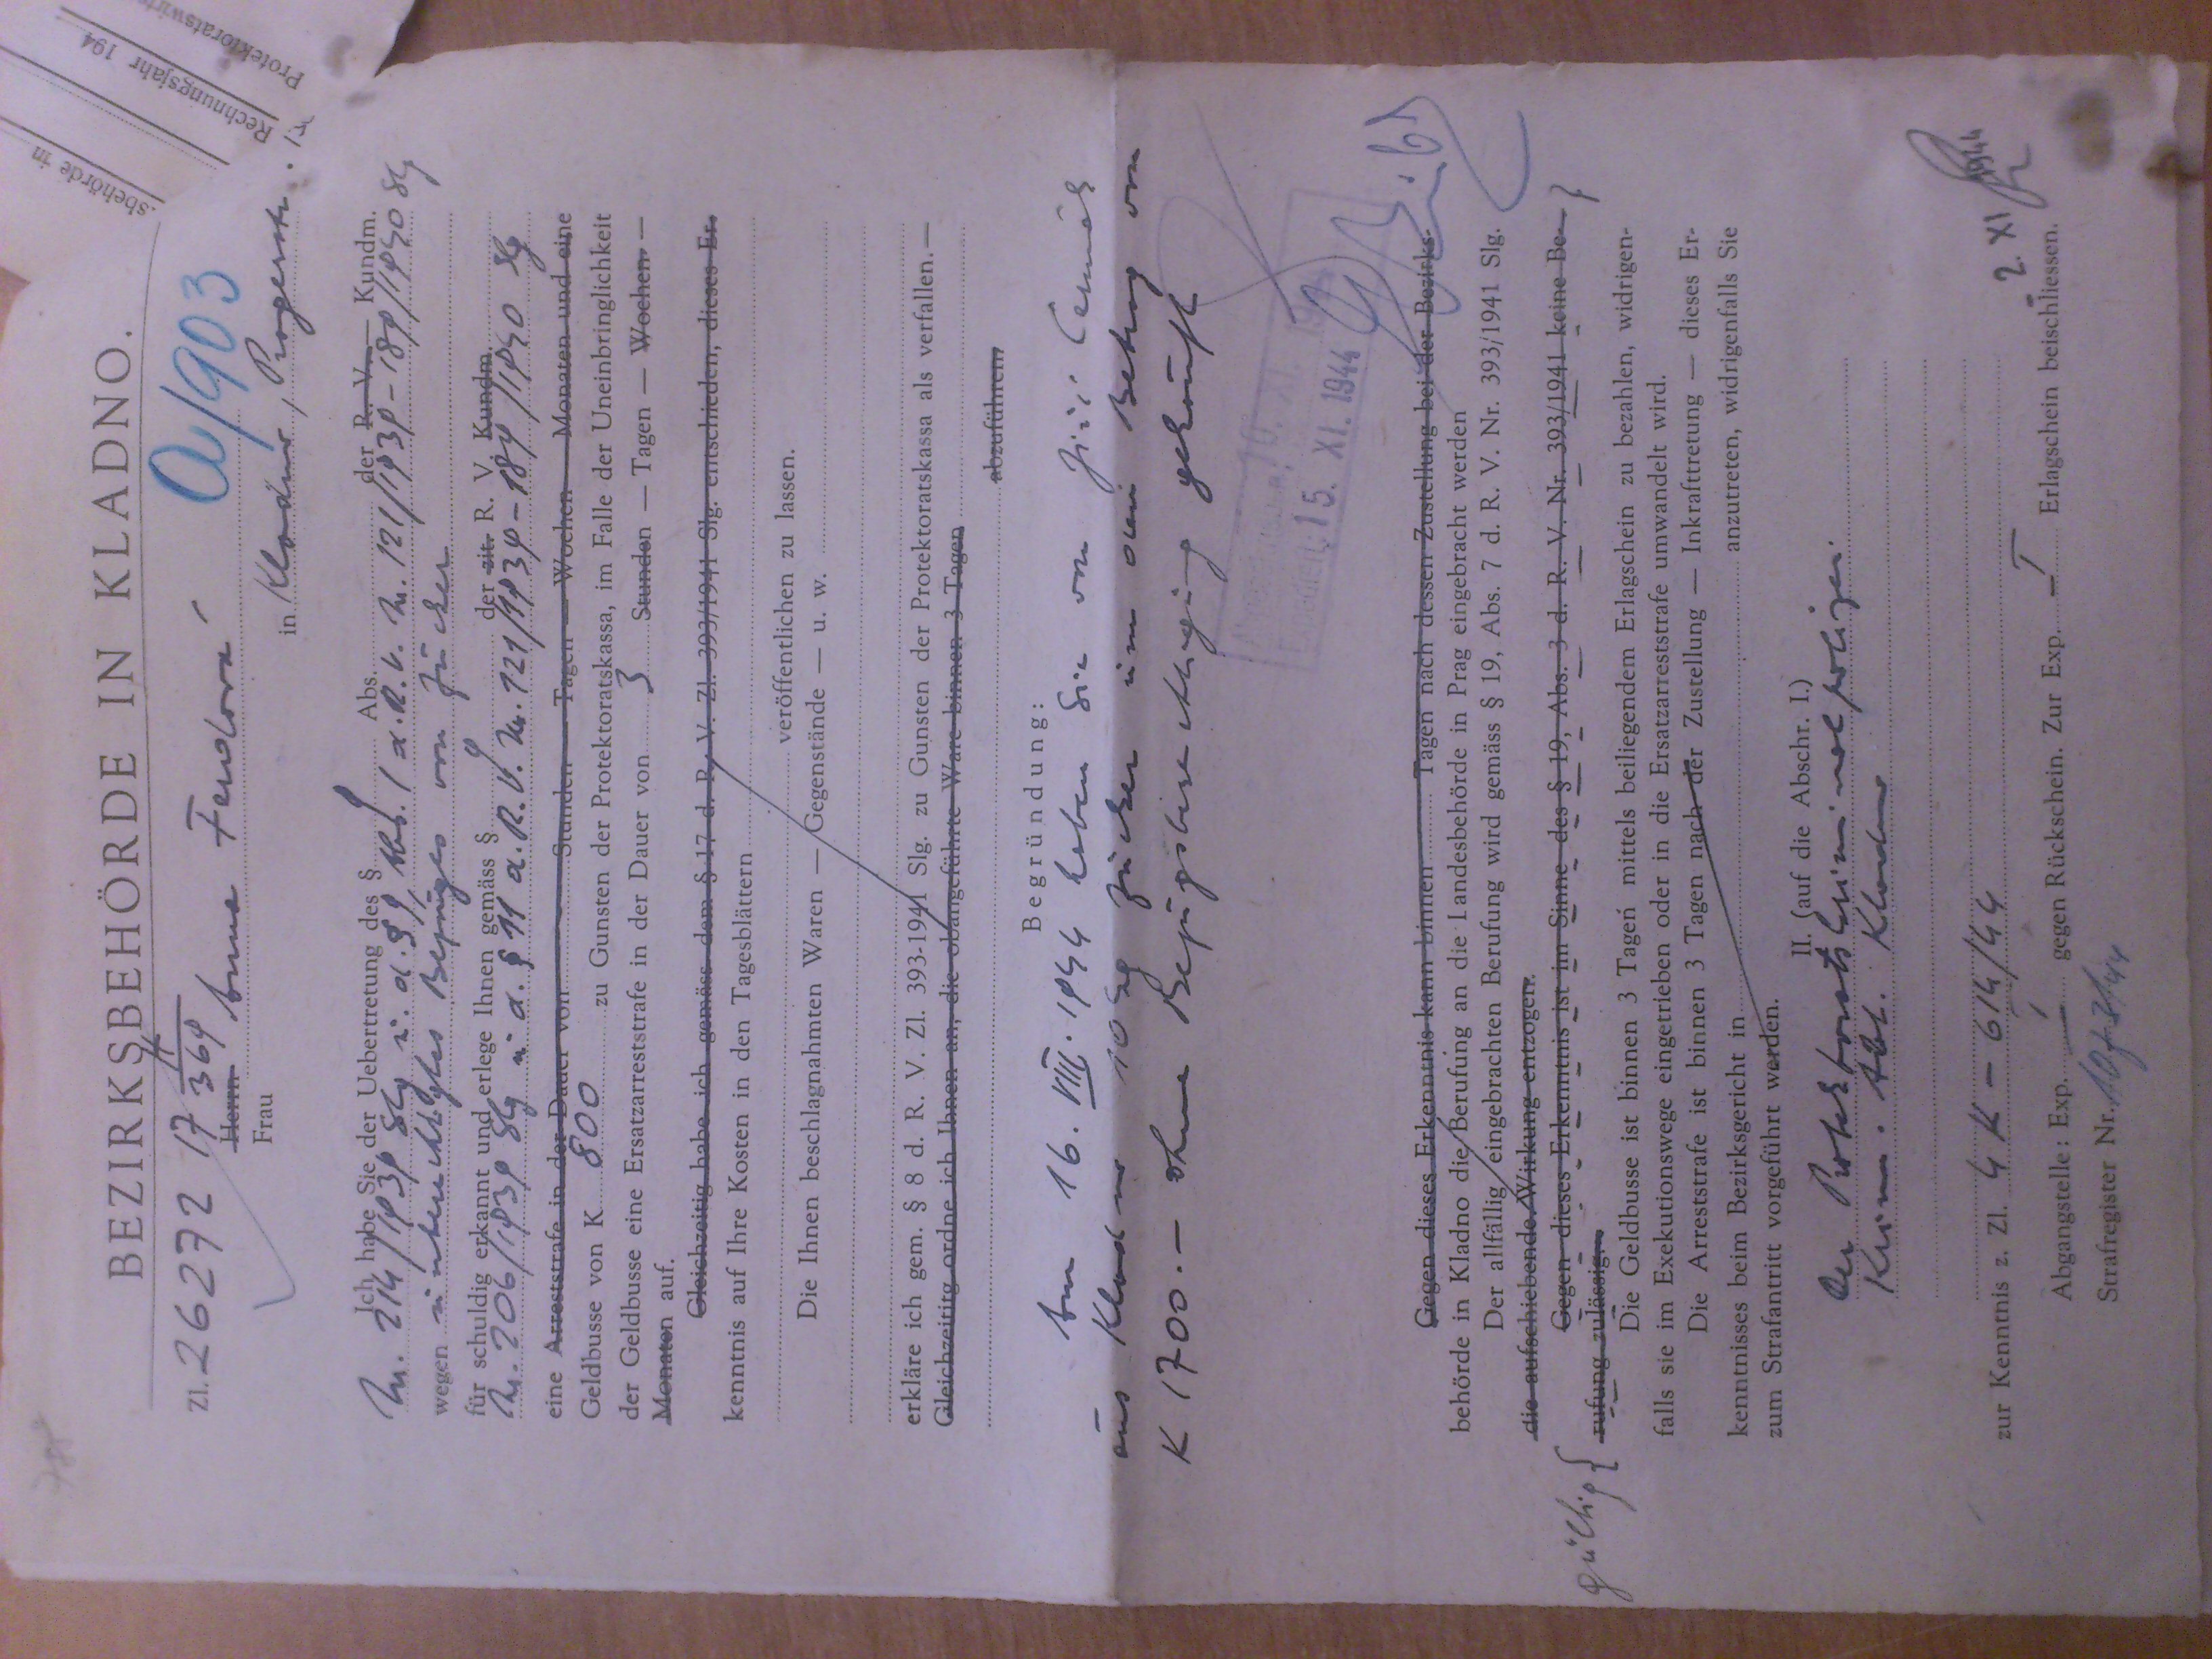 BEZIRKSBEHÖRDE IN KLADNO.
Zl. 26272 17 II/369
a/903
Herrn Anna Ferdová
Frau
in Kladno, Pragerstr.
Ich habe Sie der Uebertretung des § 9 Abs. der R. V. — Kundm.
Nr. 214/1939 Slg u. d. § 9, Abs. 1 d. R. V. Nr. 121/1939-189/1940 Slg
wegen unberechtigtes Bezuges von Zucker
für schuldig erkannt und erlege Ihnen gemäss § 9 der zit. R. V. Kundm.
Nr. 206/1939 Slg u d. § 11 d. R. V. Nr. 121/1939-189/1940 Slg
eine Arreststrafe in der Dauer von Stunden — Tagen — Wochen — Monaten und eine
Geldbusse von K 800 zu Gunsten der Protektoratskassa, im Falle der Uneinbringlichkeit
der Geldbusse eine Ersatzarreststrafe in der Dauer von 3 Stunden — Tagen — Wochen —
Monaten auf.
Gleichzeitig habe ich gemäss dem § 17 d. R. V. Zl. 393/1941 Slg. entschieden, dieses Er-
kenntnis auf Ihre Kosten in den Tagesblättern
veröffentlichen zu lassen.
Die Ihnen beschlagnahmten Waren — Gegenstände — u. w.
erkläre ich gem. § 8 d. R. V. Zl. 393-1941 Slg. zu Gunsten der Protektoratskassa als verfallen.—
Gleichzeititg ordne ich Ihnen an, die obangeführte Ware binnen 3 Tagen
abzuführen
Begründung:
Am 16. VIII. 1944 haben Sie von Jiří Čermák
aus Kladno 10 kg Zucker um den Betrag von
K 1700.— ohne Bezugsberechtigung gekauft
10. XI. 1944
Expediert: 15. XI. 1944
Gegen dieses Erkenntnis kann binnen Tagen nach dessen Zustellung bei der Bezirks-
behörde in Kladno die Berufung an die Landesbehörde in Prag eingebracht werden
Der allfällig eingebrachten Berufung wird gemäss § 19, Abs. 7 d. R. V. Nr. 393/1941 Slg.
die aufschiebende Wirkung entzogen.
Gegen dieses Erkenntnis ist im Sinne des § 19, Abs. 3 d. R. V. Nr. 393/1941 keine Be-
gültig { rufung zulässig.
Die Geldbusse ist binnen 3 Tagen mittels beiliegendem Erlagschein zu bezahlen, widrigen-
falls sie im Exekutionswege eingetrieben oder in die Ersatzarreststrafe umwandelt wird.
Die Arreststrafe ist binnen 3 Tagen nach der Zustellung — Inkrafttretung — dieses Er-
kenntnisses beim Bezirksgericht in anzutreten, widrigenfalls Sie
zum Strafantritt vorgeführt werden.
II. (auf die Abschr. I.)
Der Protektoratskriminalpolizei
Krim. Abt. Kladno
zur Kenntnis z. Zl. 4 K - 614/44
2. XI 1944
Abgangstelle: Exp. I gegen Rückschein. Zur Exp. I Erlagschein beischliessen.
Strafregister Nr.
sbehörde in
Rechnungsjahr 194